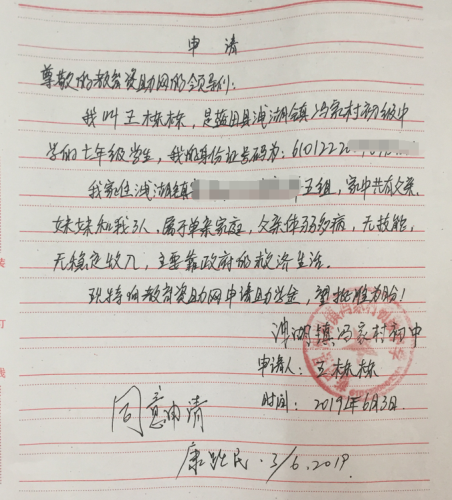 申请
尊敬的教育资助网的领导们:
我叫王栋栋,是蓝田县洩湖镇冯家村初级中
学的七年级学生,我的身份证号码为:6101222
我家住洩湖镇 五组,家中共有父亲、
妹妹和我3人,属于单亲家庭,父亲体弱多病,无技能,
无稳定收入,主要靠政府的救济生活。
现特向教育资助网申请助学金,望批准为盼!
洩湖镇冯家村初中
申请人:王栋栋
时间:2019年6月3日
同意申请
民.3/6.2019.